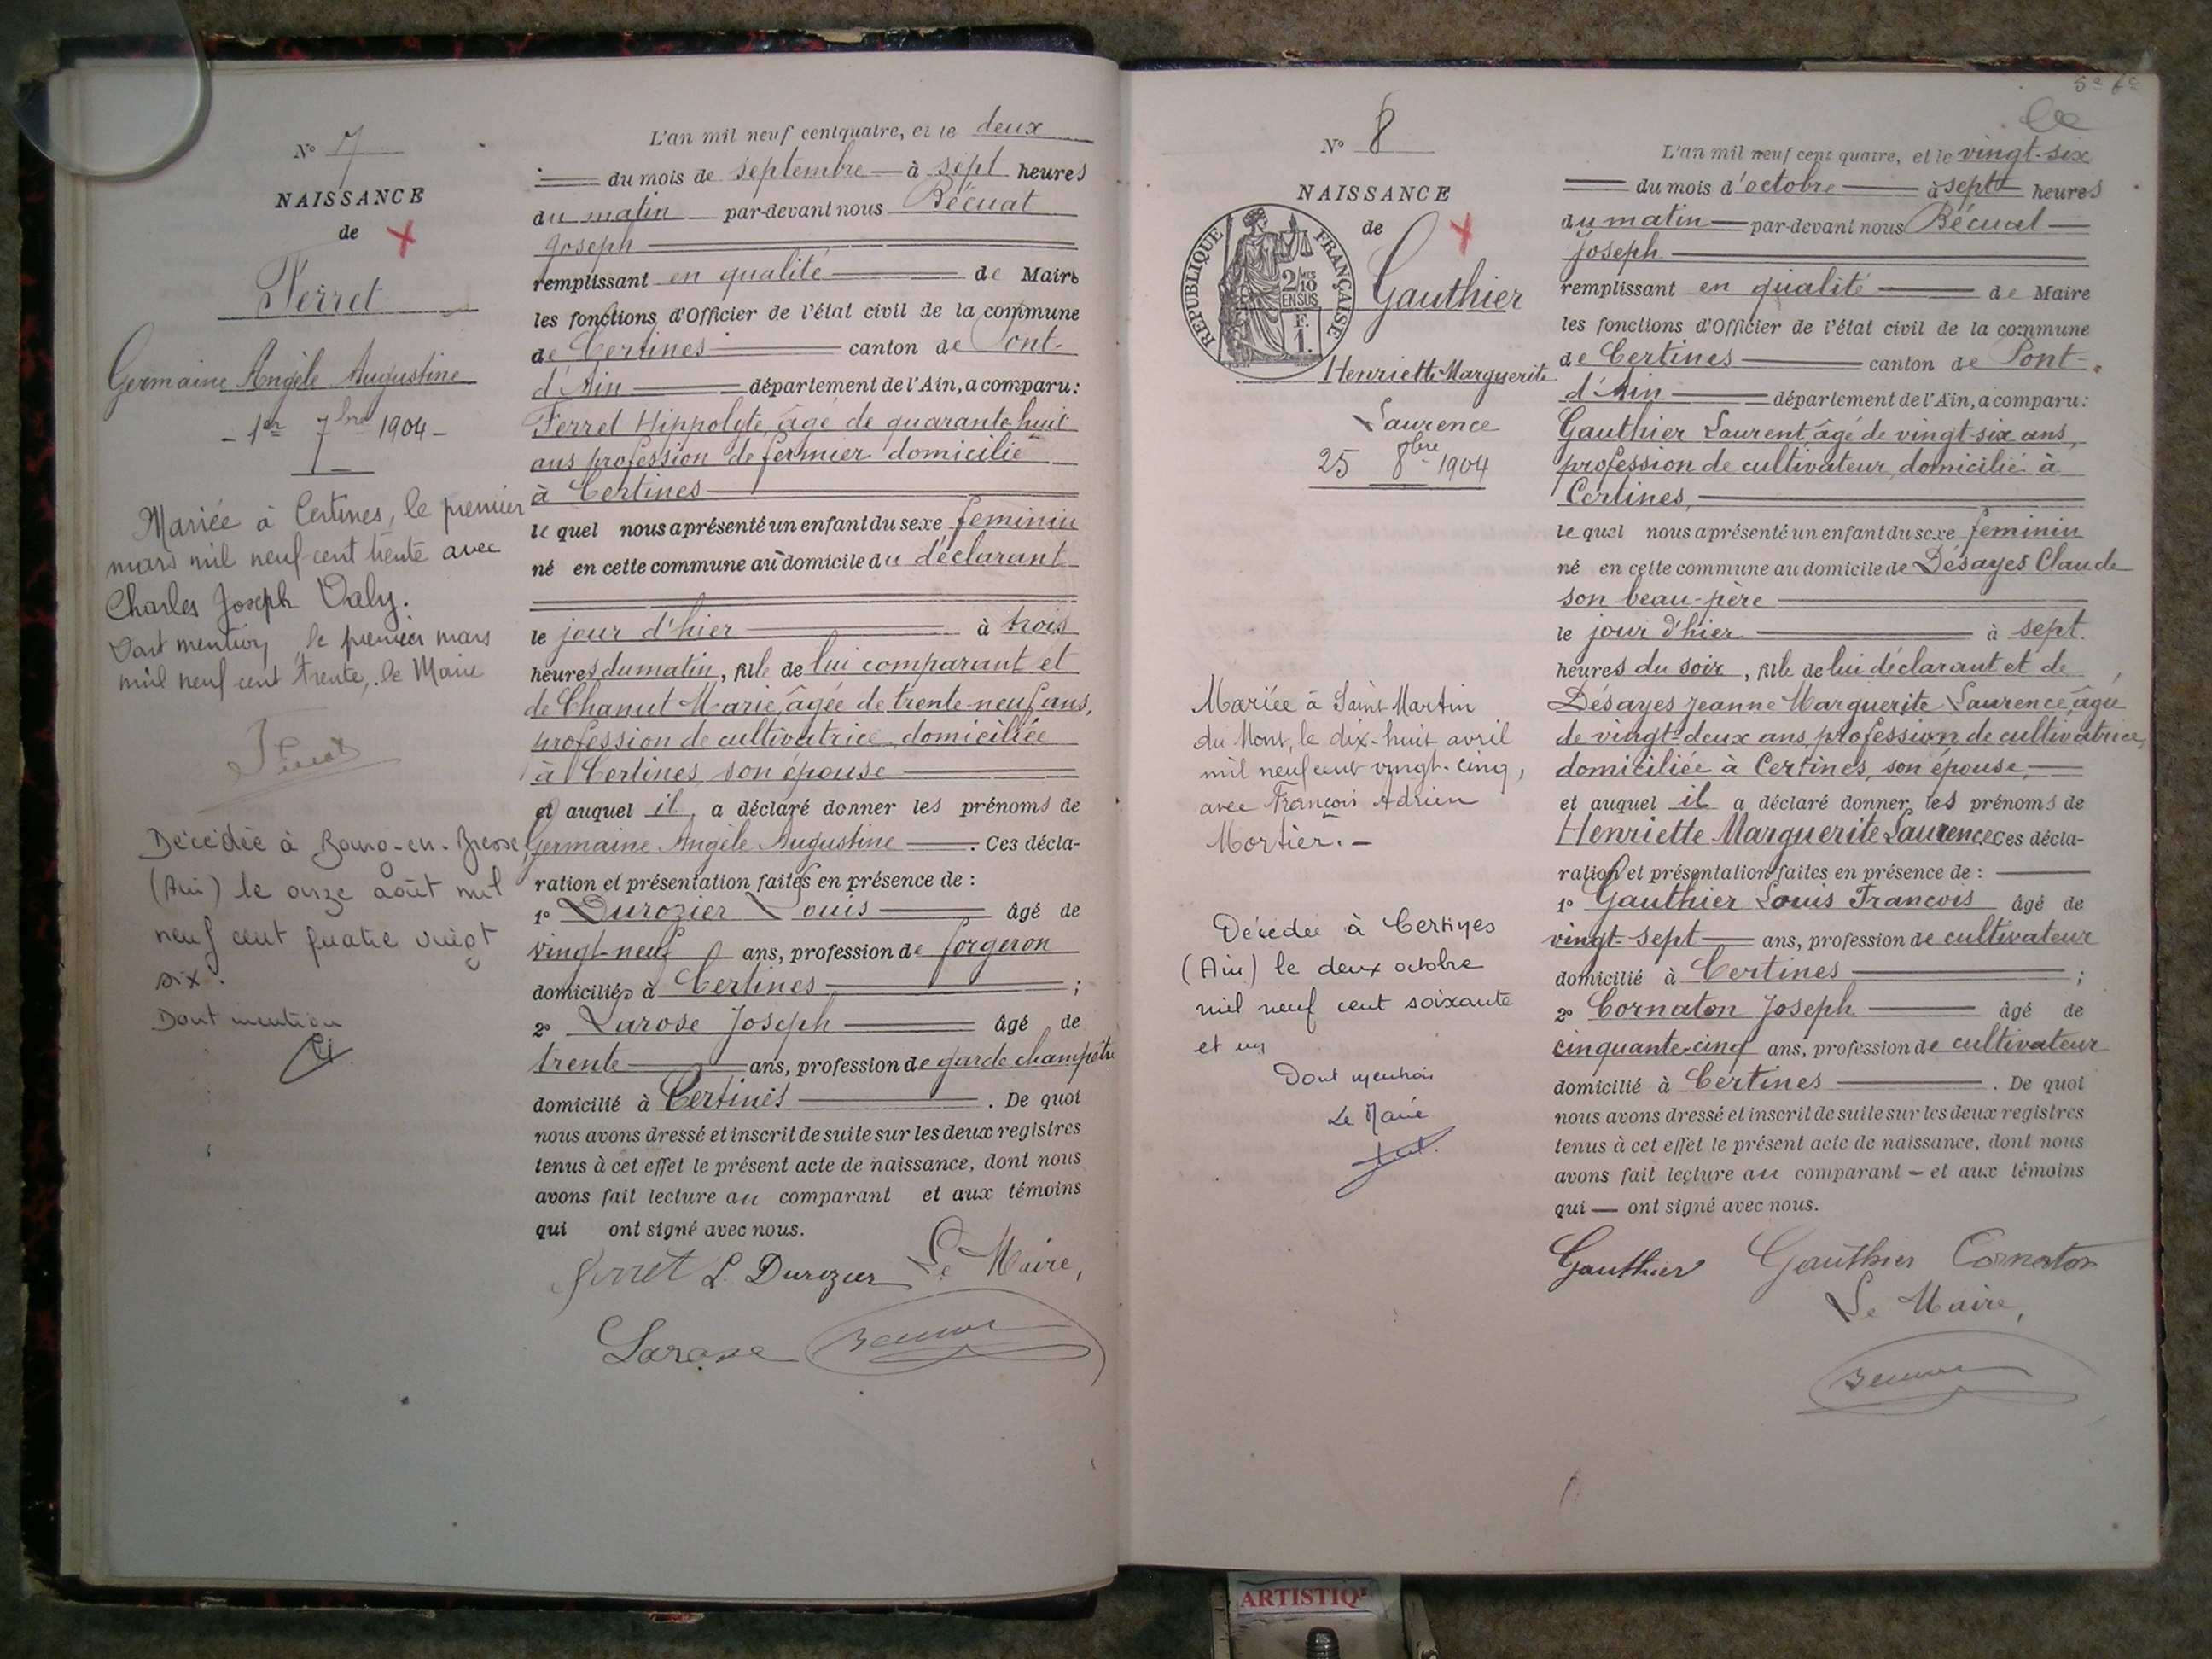 N° 7
NAISSANCE
de
Ferret
Germaine Angèle Augustine
- 1er 7bre 1904 -
Mariée à Certines, le premier
mars mil neuf cent trente avec
Charles Joseph Valy.
Dont mention, le premier mars
mil neuf cent trente, le Maire
Décédée à Bourg-en-Bresse
(Ain) le onze août mil
neuf cent quatre vingt
six.
Dont mention
L'an mil neuf cent quatre, et le deux
du mois de septembre à sept heures
du matin par-devant nous Bécuat
Joseph
remplissant en qualité de Maire
les fonctions d'Officier de l'état civil de la commune
de Certines canton de Pont-
d'Ain département de l'Ain, a comparu:
Ferret Hippolyte, âgé de quarante huit
ans profession de fermier domicilié
à Certines
le quel nous a présenté un enfant du sexe féminin
né en cette commune au domicile du déclarant
le jour d'hier à trois
heures du matin, fille de lui comparant et
de Chanut Marie, âgée de trente neuf ans,
profession de cultivatrice, domiciliée
à Certines son épouse
et auquel il a déclaré donner les prénoms de
Germaine Angèle Augustine. Ces décla-
ration et présentation faites en présence de :
1° Durozier Louis âgé de
vingt-neuf ans, profession de forgeron
domicilié à Certines ;
2° Larose Joseph âgé de
trente ans, profession de garde champêtre
domicilié à Certines. De quoi
nous avons dressé et inscrit de suite sur les deux registres
tenus à cet effet le présent acte de naissance, dont nous
avons fait lecture au comparant et aux témoins
qui ont signé avec nous.
Ferret L. Durozier Le Maire,
Larose Bécuat
N° 8
NAISSANCE
de
REPUBLIQUE FRANÇAISE
2/10 MES
EN SUS
F.
1.
Gauthier
Henriette Marguerite
Laurence
25 8bre 1904
Mariée à Saint Martin
du Mont, le dix-huit avril
mil neuf cent vingt-cinq,
avec François Adrien
Mortier. -
Décédée à Certines
(Ain) le deux octobre
mil neuf cent soixante
et un
Dont mention
Le Maire
L'an mil neuf cent quatre, et le vingt-six
du mois d'octobre à sept heures
du matin par-devant nous Bécuat
Joseph
remplissant en qualité de Maire
les fonctions d'Officier de l'état civil de la commune
de Certines canton de Pont-
d'Ain département de l'Ain, a comparu:
Gauthier Laurent, âgé de vingt-six ans,
profession de cultivateur, domicilié à
Certines,
le quel nous a présenté un enfant du sexe féminin
né en cette commune au domicile de Désayes Claude
son beau-père
le jour d'hier à sept
heures du soir, fille de lui déclarant et de
Désayes Jeanne Marguerite Laurence, âgée
de vingt-deux ans, profession de cultivatrice,
domiciliée à Certines, son épouse,
et auquel il a déclaré donner les prénoms de
Henriette Marguerite Laurence Ces décla-
ration et présentation faites en présence de :
1° Gauthier Louis François âgé de
vingt-sept ans, profession de cultivateur
domicilié à Certines ;
2° Cornaton Joseph âgé de
cinquante-cinq ans, profession de cultivateur
domicilié à Certines. De quoi
nous avons dressé et inscrit de suite sur les deux registres
tenus à cet effet le présent acte de naissance, dont nous
avons fait lecture au comparant - et aux témoins
qui — ont signé avec nous.
Gauthier Gauthier Cornaton
Le Maire,
Bécuat
ARTISTIQ